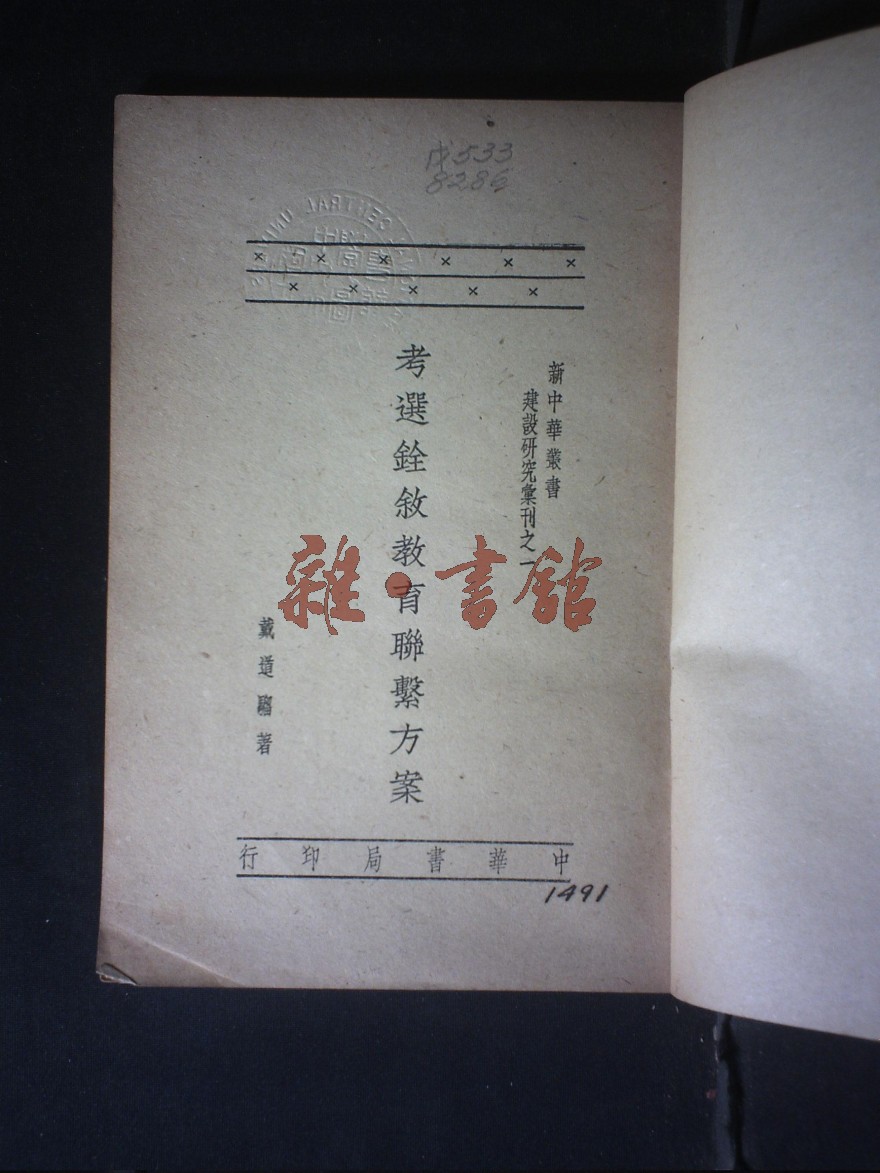 戊533
8286
新中華叢書
建設研究彙刊之一
考選銓敘教育聯繫方案
戴道騮著
雜·書館
中華書局印行
1491